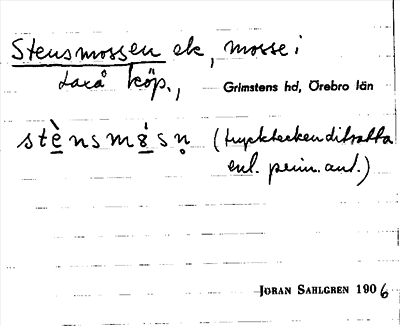 Stensmossen ek, mosse i
Laxå köp., Grimstens hd, Örebro län
stè̱nsmó̱sn̥ (trycktecken ditsatta
enl. prim. ant.)
JÖRAN SAHLGREN 1906